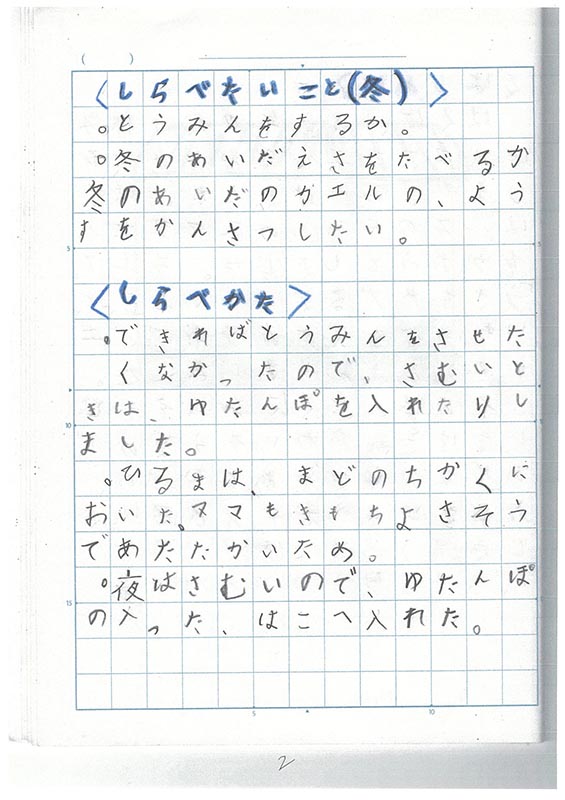 （　　）
〈しらべたいこと(冬)〉
。とうみんをするか。
。冬のあいだえさをたべるか
冬のあいだのカエルの、よう
すをかんさつしたい。
〈しらべかた〉
。できればとうみんをさせた
くなかったので、さむいと
きは、ゆたんぽを入れたりし
ました。
。ひるまは、まどのちかくに
おいた。ヌマもきもちよさそう
であたたかいため。
。夜はさむいので、ゆたんぽ
の入った、はこへ入れた。
5
10
15
5
10
2